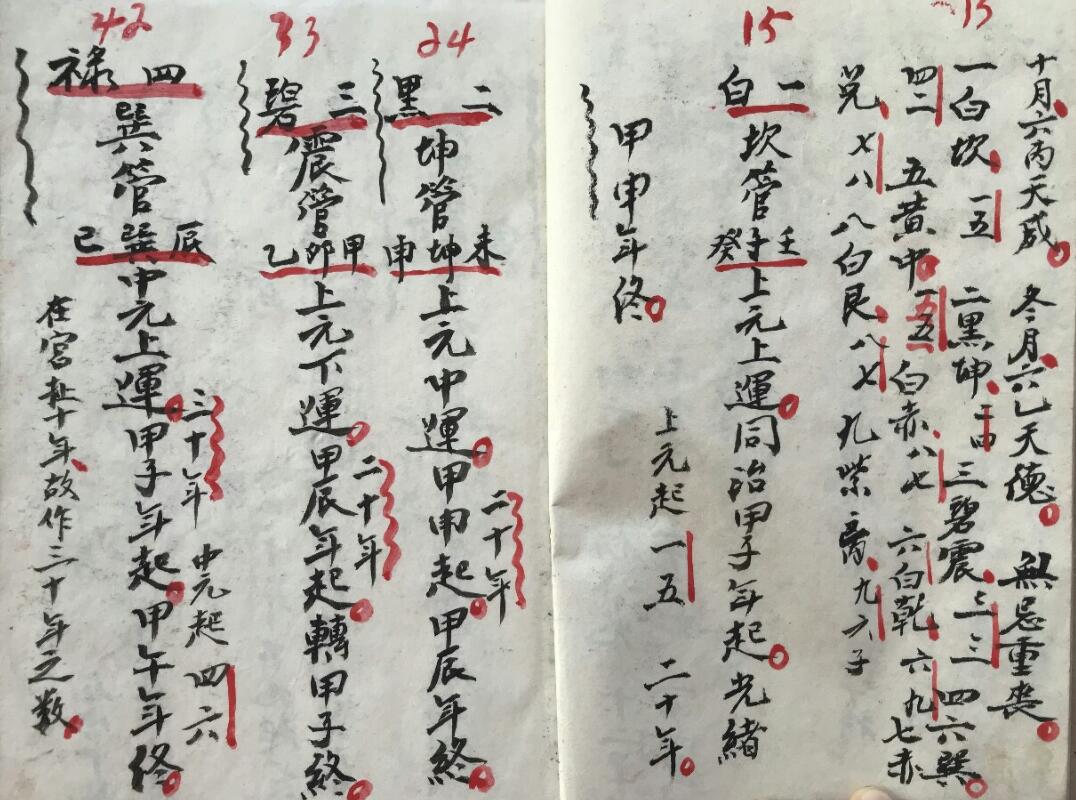 13
十月六丙天咸 冬月六乙天德 無忌重喪
一白坎 一五 二黑坤 二四 三碧震 三三 四六巽
四二 五黃中 一五 白赤八七 六白乾 六九 七赤
兌 七八 八白艮 八七 九紫 九六子
15
一白
坎管
壬子癸
上元上運同治甲子年起光緒
甲申年終
上元起 一五 二十年
24
二黑
坤管
未坤申
上元中運甲申起甲辰年終
二十年
33
三碧
震管
甲卯乙
上元下運甲辰年起轉甲子終
二十年
42
四祿
巽管
辰巽巳
中元上運甲子年起甲午年終
三十年 中元起 四六
在宮扯十年故作三十年之數